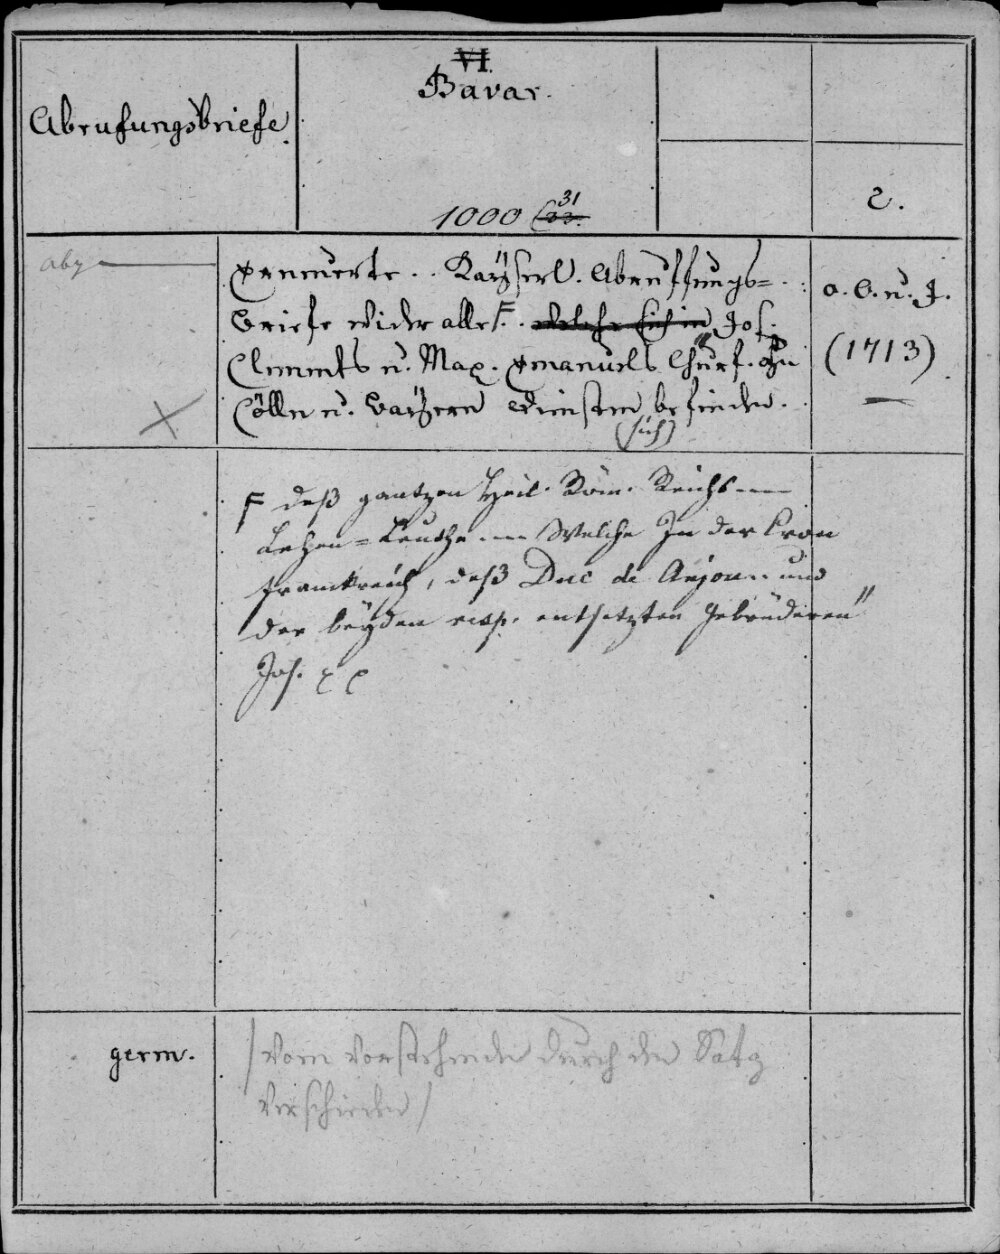 Abrufungsbriefe.
VI.
Bavar.
1000 31
2.
abg
Erneuerte .. Kaÿserl. Abruffungs=
briefe wider alle F. welche sich in Jos.
Clements u. Max. Emanuels Churf. zu
Cölln u. Baÿern Diensten befinden.
(sich)
o. O. u. J.
(1713)
F deß gantzen Heil. Röm. Reichs
Lehen=Leuthe Welche In der Cron
Franckreich, deß Duc de Anjou .. und
der beÿden resp. entsetzten Gebrüderen
Jos.
germ.
/ vom vorstehenden durch den Satz
verschieden /